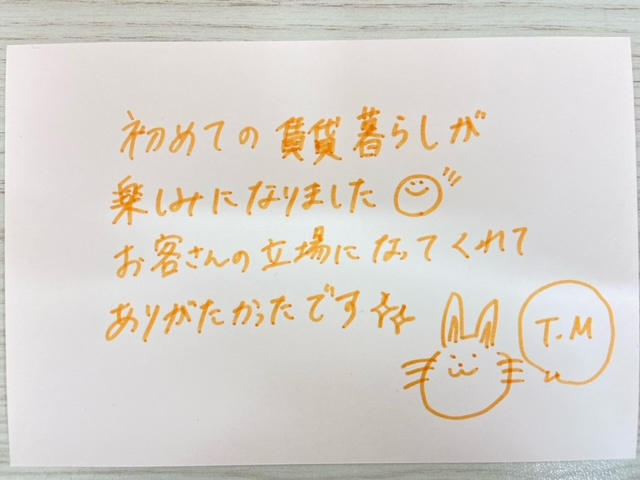 初めての賃貸暮らしが
楽しみになりました
お客さんの立場になってくれて
ありがたかったです
T.M